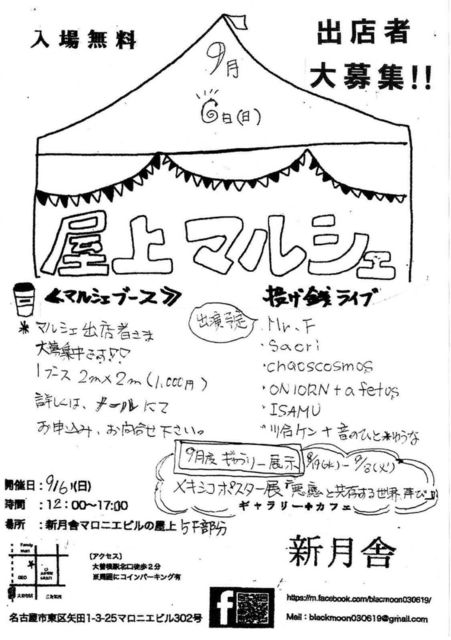 入場無料
出店者
大募集!!
9月
6日(日)
屋上マルシェ
≪マルシェブース≫
*マルシェ出店者さま
大募集中です!!
1ブース 2m×2m (1,000円)
詳しくは、メールにて
お申込み、お問合せ下さい。
投げ銭ライブ
出演予定
・Mr.F
・Saori
・chaoscosmos
・ONIORN+afetus
・ISAMU
9月度 ギャラリー展示
メキシコポスター展 「悪態と共存する世界」
ギャラリー+カフェ
開催日:9/6(日)
時間 :12:00~17:00
場所 :新月舎マロニエビルの屋上
新月舎
Family mart
GEO
[アクセス]
大曽根駅北口徒歩2分
※周囲にコインパーキング有
名古屋市東区矢田1-3-25マロニエビル302号
https://m.facebook.com/blacmoon030619/
Mail:blackmoon030619@gmail.com